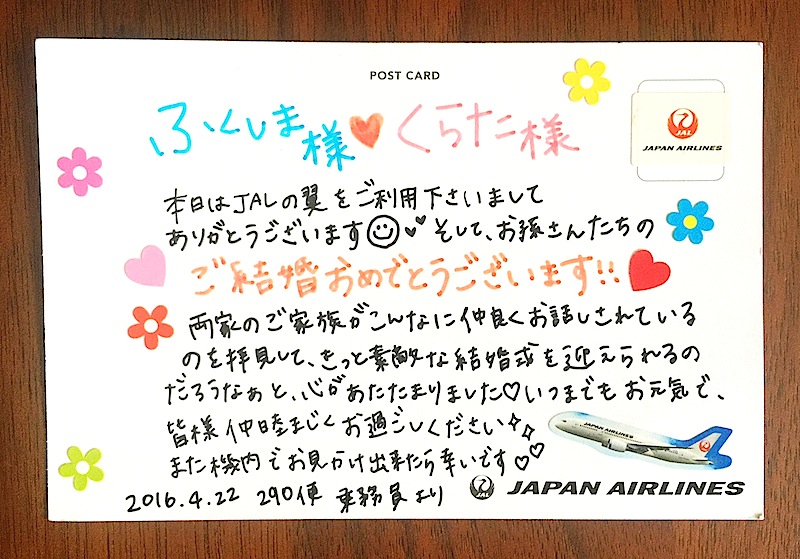 POST CARD
ふくしま様♥くらた様
JAL
JAPAN AIRLINES
本日はJALの翼をご利用下さいまして
ありがとうございます☺♥♥そして、お孫さんたちの
ご結婚おめでとうございます!!
両家のご家族がこんなに仲良くお話しされている
のを拝見して、きっと素敵な結婚式を迎えられるの
だろうなぁと、心があたたまりました♡いつまでもお元気で、
皆様仲睦まじくお過ごしください✧✧
また機内でお見かけ出来たら幸いです♡♡
JAPAN AIRLINES
2016.4.22 290便 乗務員より
JAPAN AIRLINES